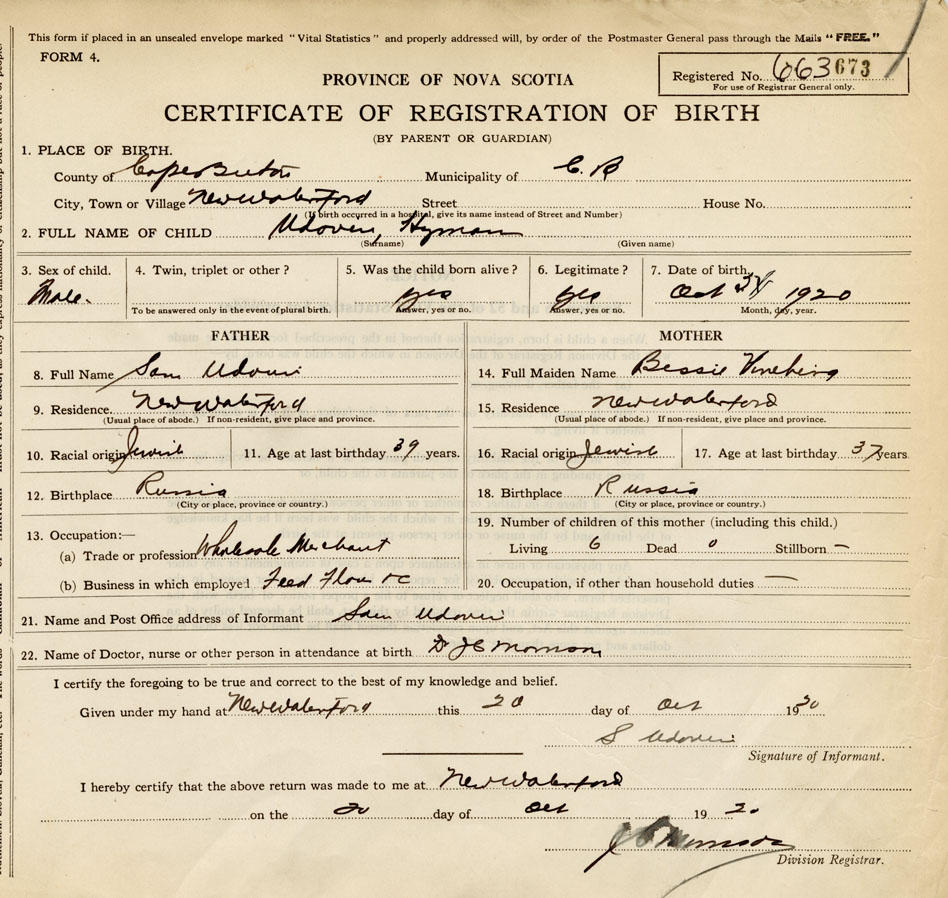 This form if placed in an unsealed envelope marked "Vital Statistics" and properly addressed will, by order of the Postmaster General pass through the Mails "FREE."
FORM 4.
Registered No. 663 673
For use of Registrar General only.
PROVINCE OF NOVA SCOTIA
CERTIFICATE OF REGISTRATION OF BIRTH
(BY PARENT OR GUARDIAN)
1. PLACE OF BIRTH.
County of Cape Breton Municipality of C. B
City, Town or Village New Waterford Street House No.
(If birth occurred in a hospital, give its name instead of Street and Number)
2. FULL NAME OF CHILD Udovin, Hyman
(Surname) (Given name)
3. Sex of child. 4. Twin, triplet or other? 5. Was the child born alive? 6. Legitimate? 7. Date of birth
Male. yes yes Oct 1920
To be answered only in the event of plural birth. Answer, yes or no. Answer, yes or no. Month, day, year.
FATHER MOTHER
8. Full Name Sam Udovin 14. Full Maiden Name Bessie
9. Residence. New Waterford 15. Residence New Waterford
(Usual place of abode.) If non-resident, give place and province. (Usual place of abode.) If non-resident, give place and province.
10. Racial origin Jewish 11. Age at last birthday 39 years. 16. Racial origin Jewish 17. Age at last birthday 37 years.
12. Birthplace Russia 18. Birthplace Russia
(City or place, province or country.) (City or place, province or country.)
13. Occupation:— 19. Number of children of this mother (including this child.)
(a) Trade or profession Wholesale Merchant Living 6 Dead 0 Stillborn —
(b) Business in which employed Feed Flour &c 20. Occupation, if other than household duties —
21. Name and Post Office address of Informant Sam Udovin
22. Name of Doctor, nurse or other person in attendance at birth Dr J C Morrison
I certify the foregoing to be true and correct to the best of my knowledge and belief.
Given under my hand at New Waterford this 20 day of Oct 1920
S Udovin
Signature of Informant.
I hereby certify that the above return was made to me at New Waterford
on the 20 day of Oct 1920
J C Morrison
Division Registrar.